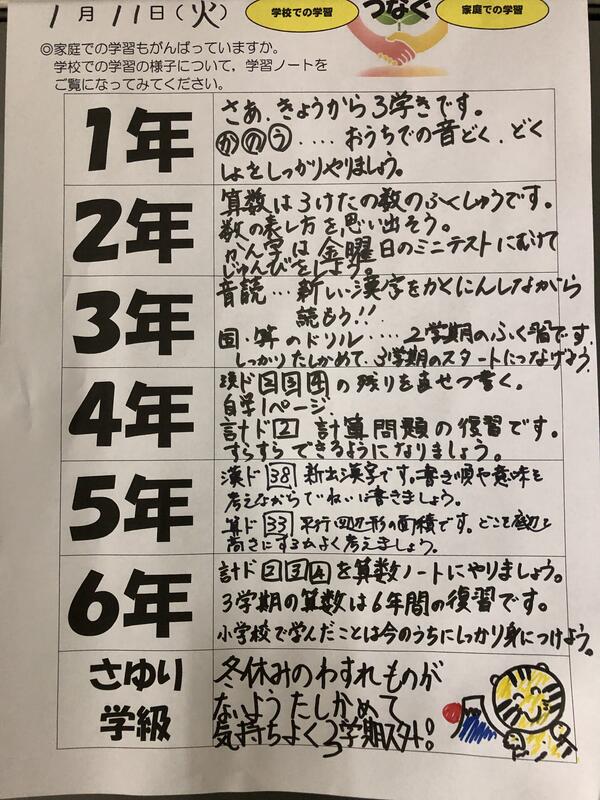 1月11日(火)
学校での学習
つなぐ
家庭での学習
◎家庭での学習もがんばっていますか。
学校での学習の様子について，学習ノートを
ご覧になってみてください。
1年
さあ、きょうから3学きです。
かのう....おうちでの音どく、どく
しょをしっかりやりましょう。
2年
算数は3けたの数のふくしゅうです。
数の表し方を思い出そう。
かん字は金曜日のミニテストにむけて
じゅんびをしよう。
3年
音読…新しい漢字をかくにんしながら
読もう!!
国・算のドリル....2学期のふく習です。
しっかりたしかめて、3学期のスタートにつなげよう。
4年
漢ド 2 3 4 の残りを直せつ書く。
自学1ページ.
計ド 2 計算問題の復習です。
すらすらできるようになりましょう。
5年
漢ド 38 新出漢字です。書き順や意味を
考えながらていねいに書きましょう。
算ド 33 平行四辺形の面積です。どこを底辺と
高さにするかよく考えましょう。
6年
計ド 2 3 4 を算数ノートにやりましょう。
3学期の算数は6年間の復習です。
小学校で学んだことは今のうちにしっかり身につけよう。
さゆり
学級
冬休みのわすれものが
ないようたしかめて
気持ちよく3学期スタート!